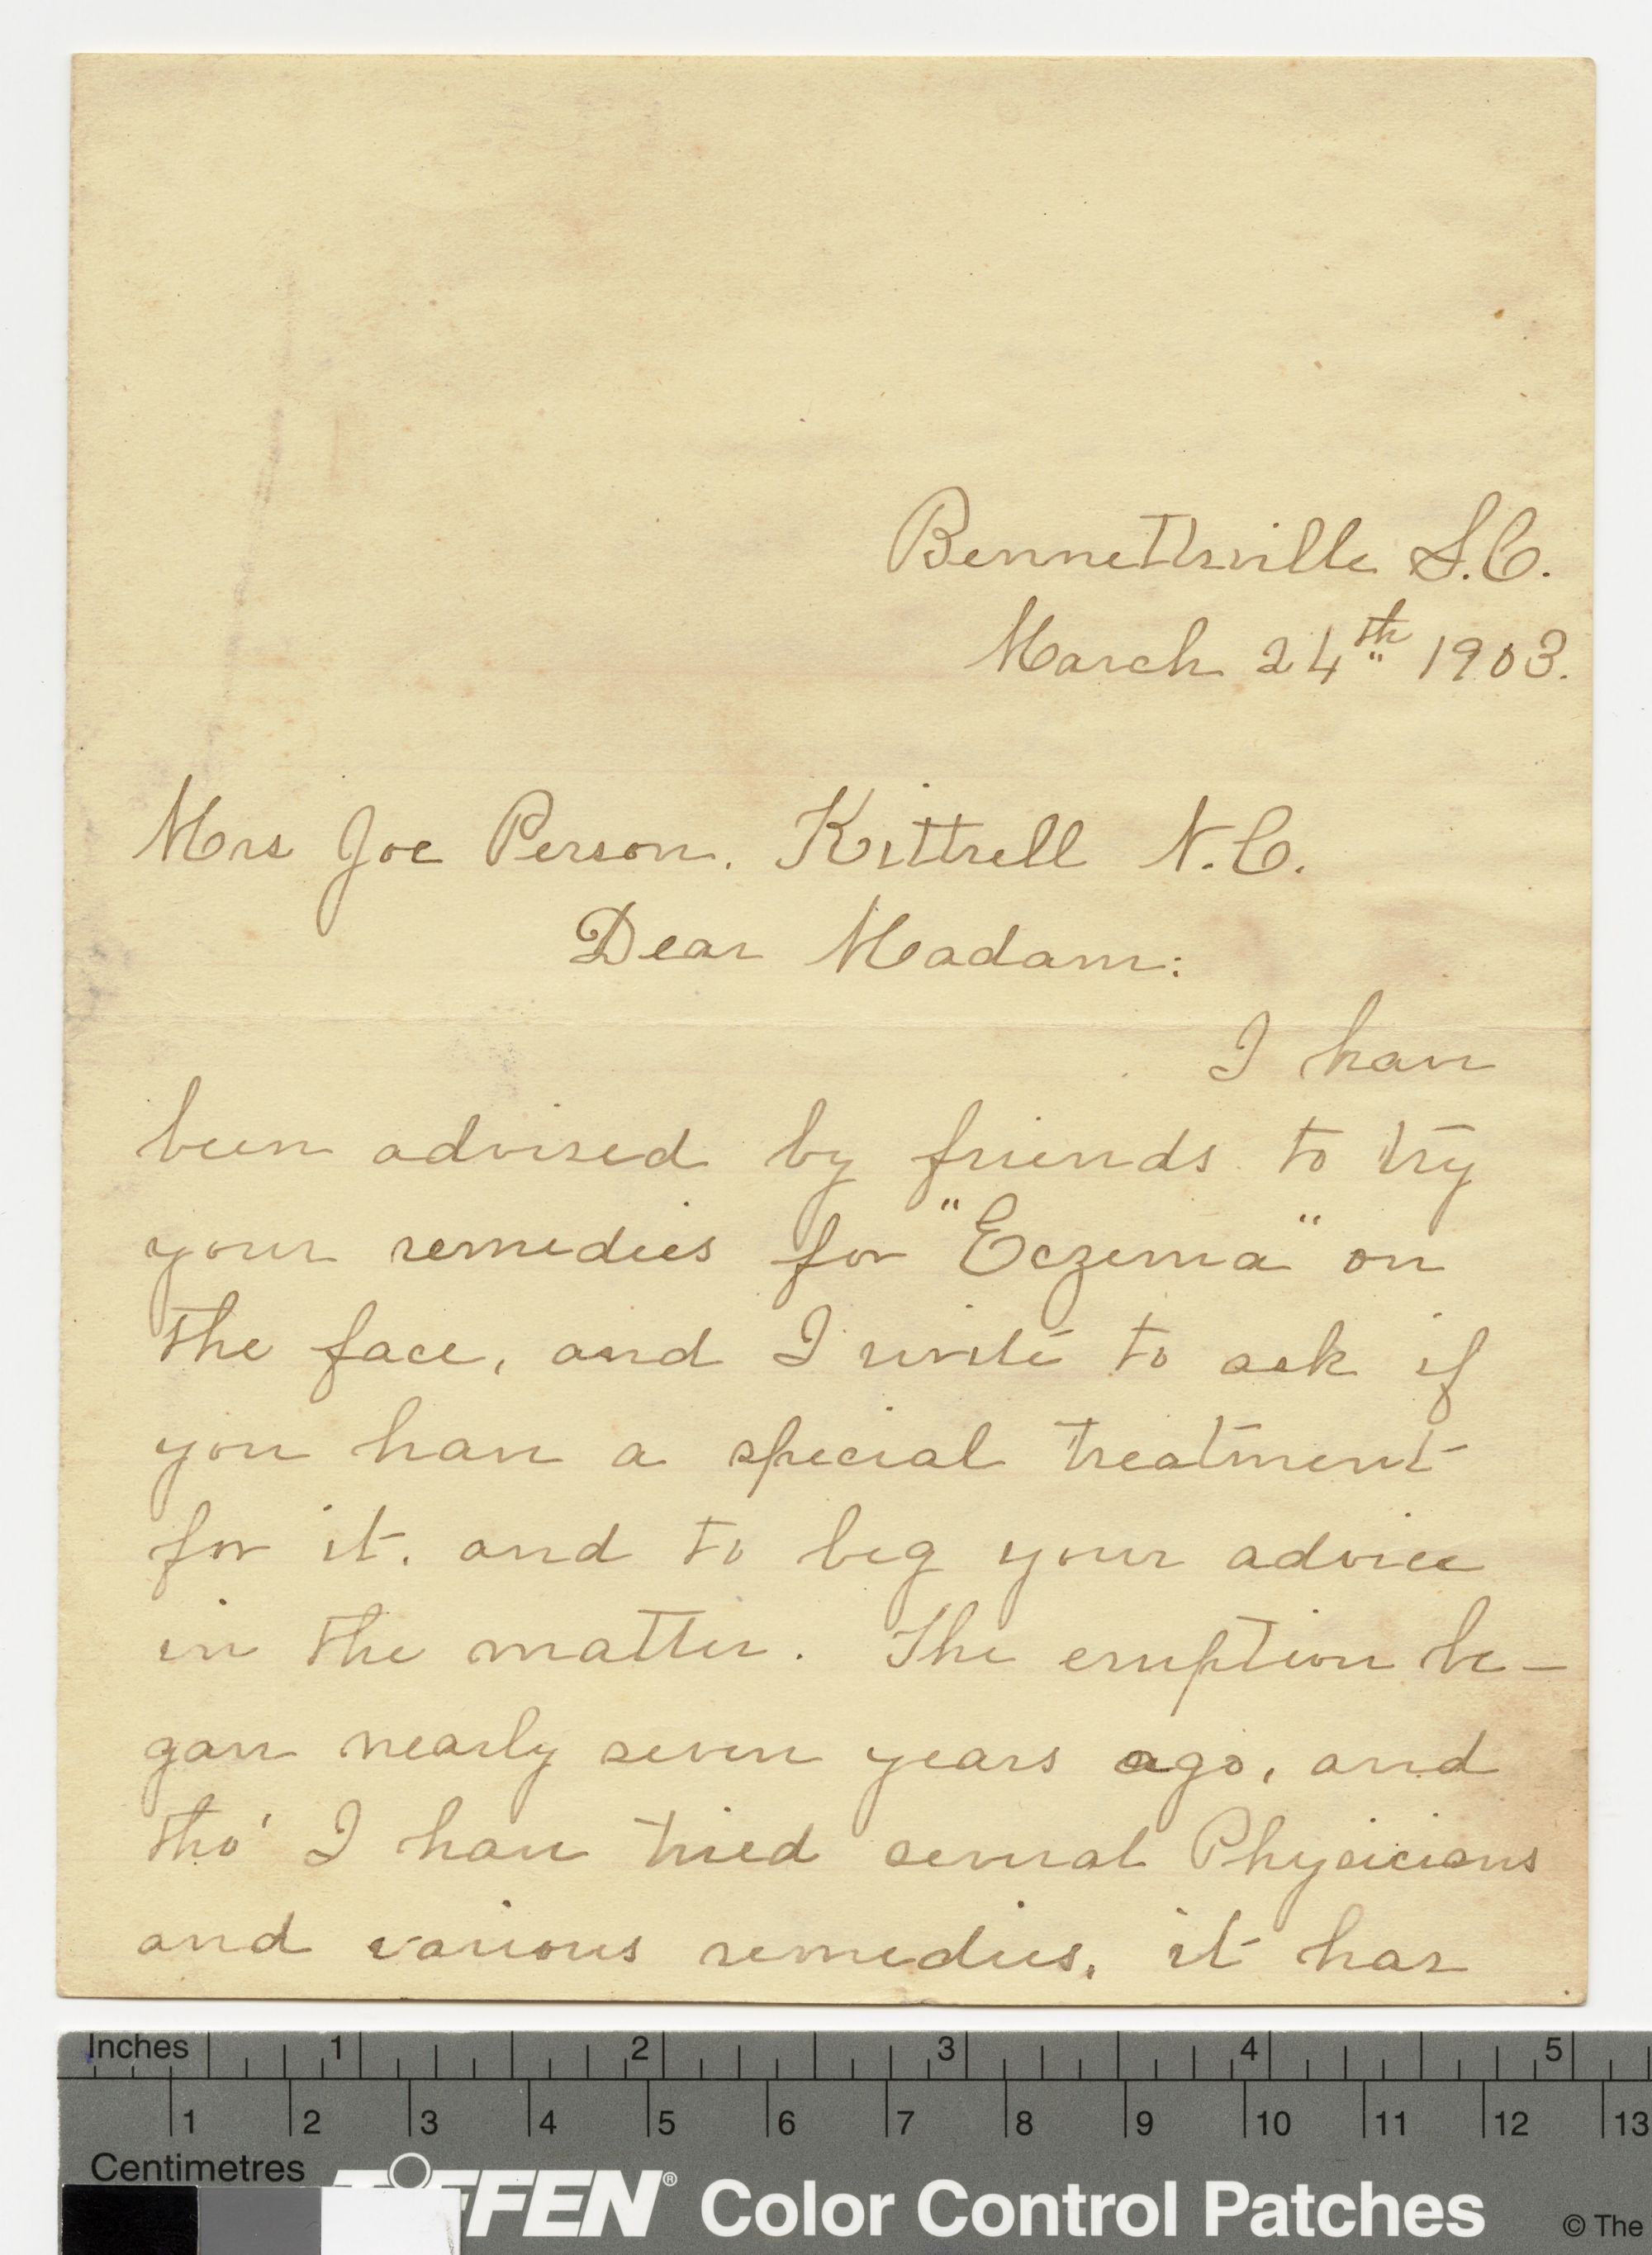 Bennettsville S.C.
March 24th 1903.
Mrs Joe Person. Kittrell N.C.
Dear Madam:
I have
been advised by friends to try
your remedies for "Eczema" on
the face, and I write to ask if
you have a special treatment
for it. and to beg your advice
in the matter. The eruption be-
gan nearly seven years ago, and
tho' I have tried several Physicians
and various remedies, it has
Inches 1 2 3 4 5
1 2 3 4 5 6 7 8 9 10 11 12 13
Centimetres
TIFFEN® Color Control Patches © The